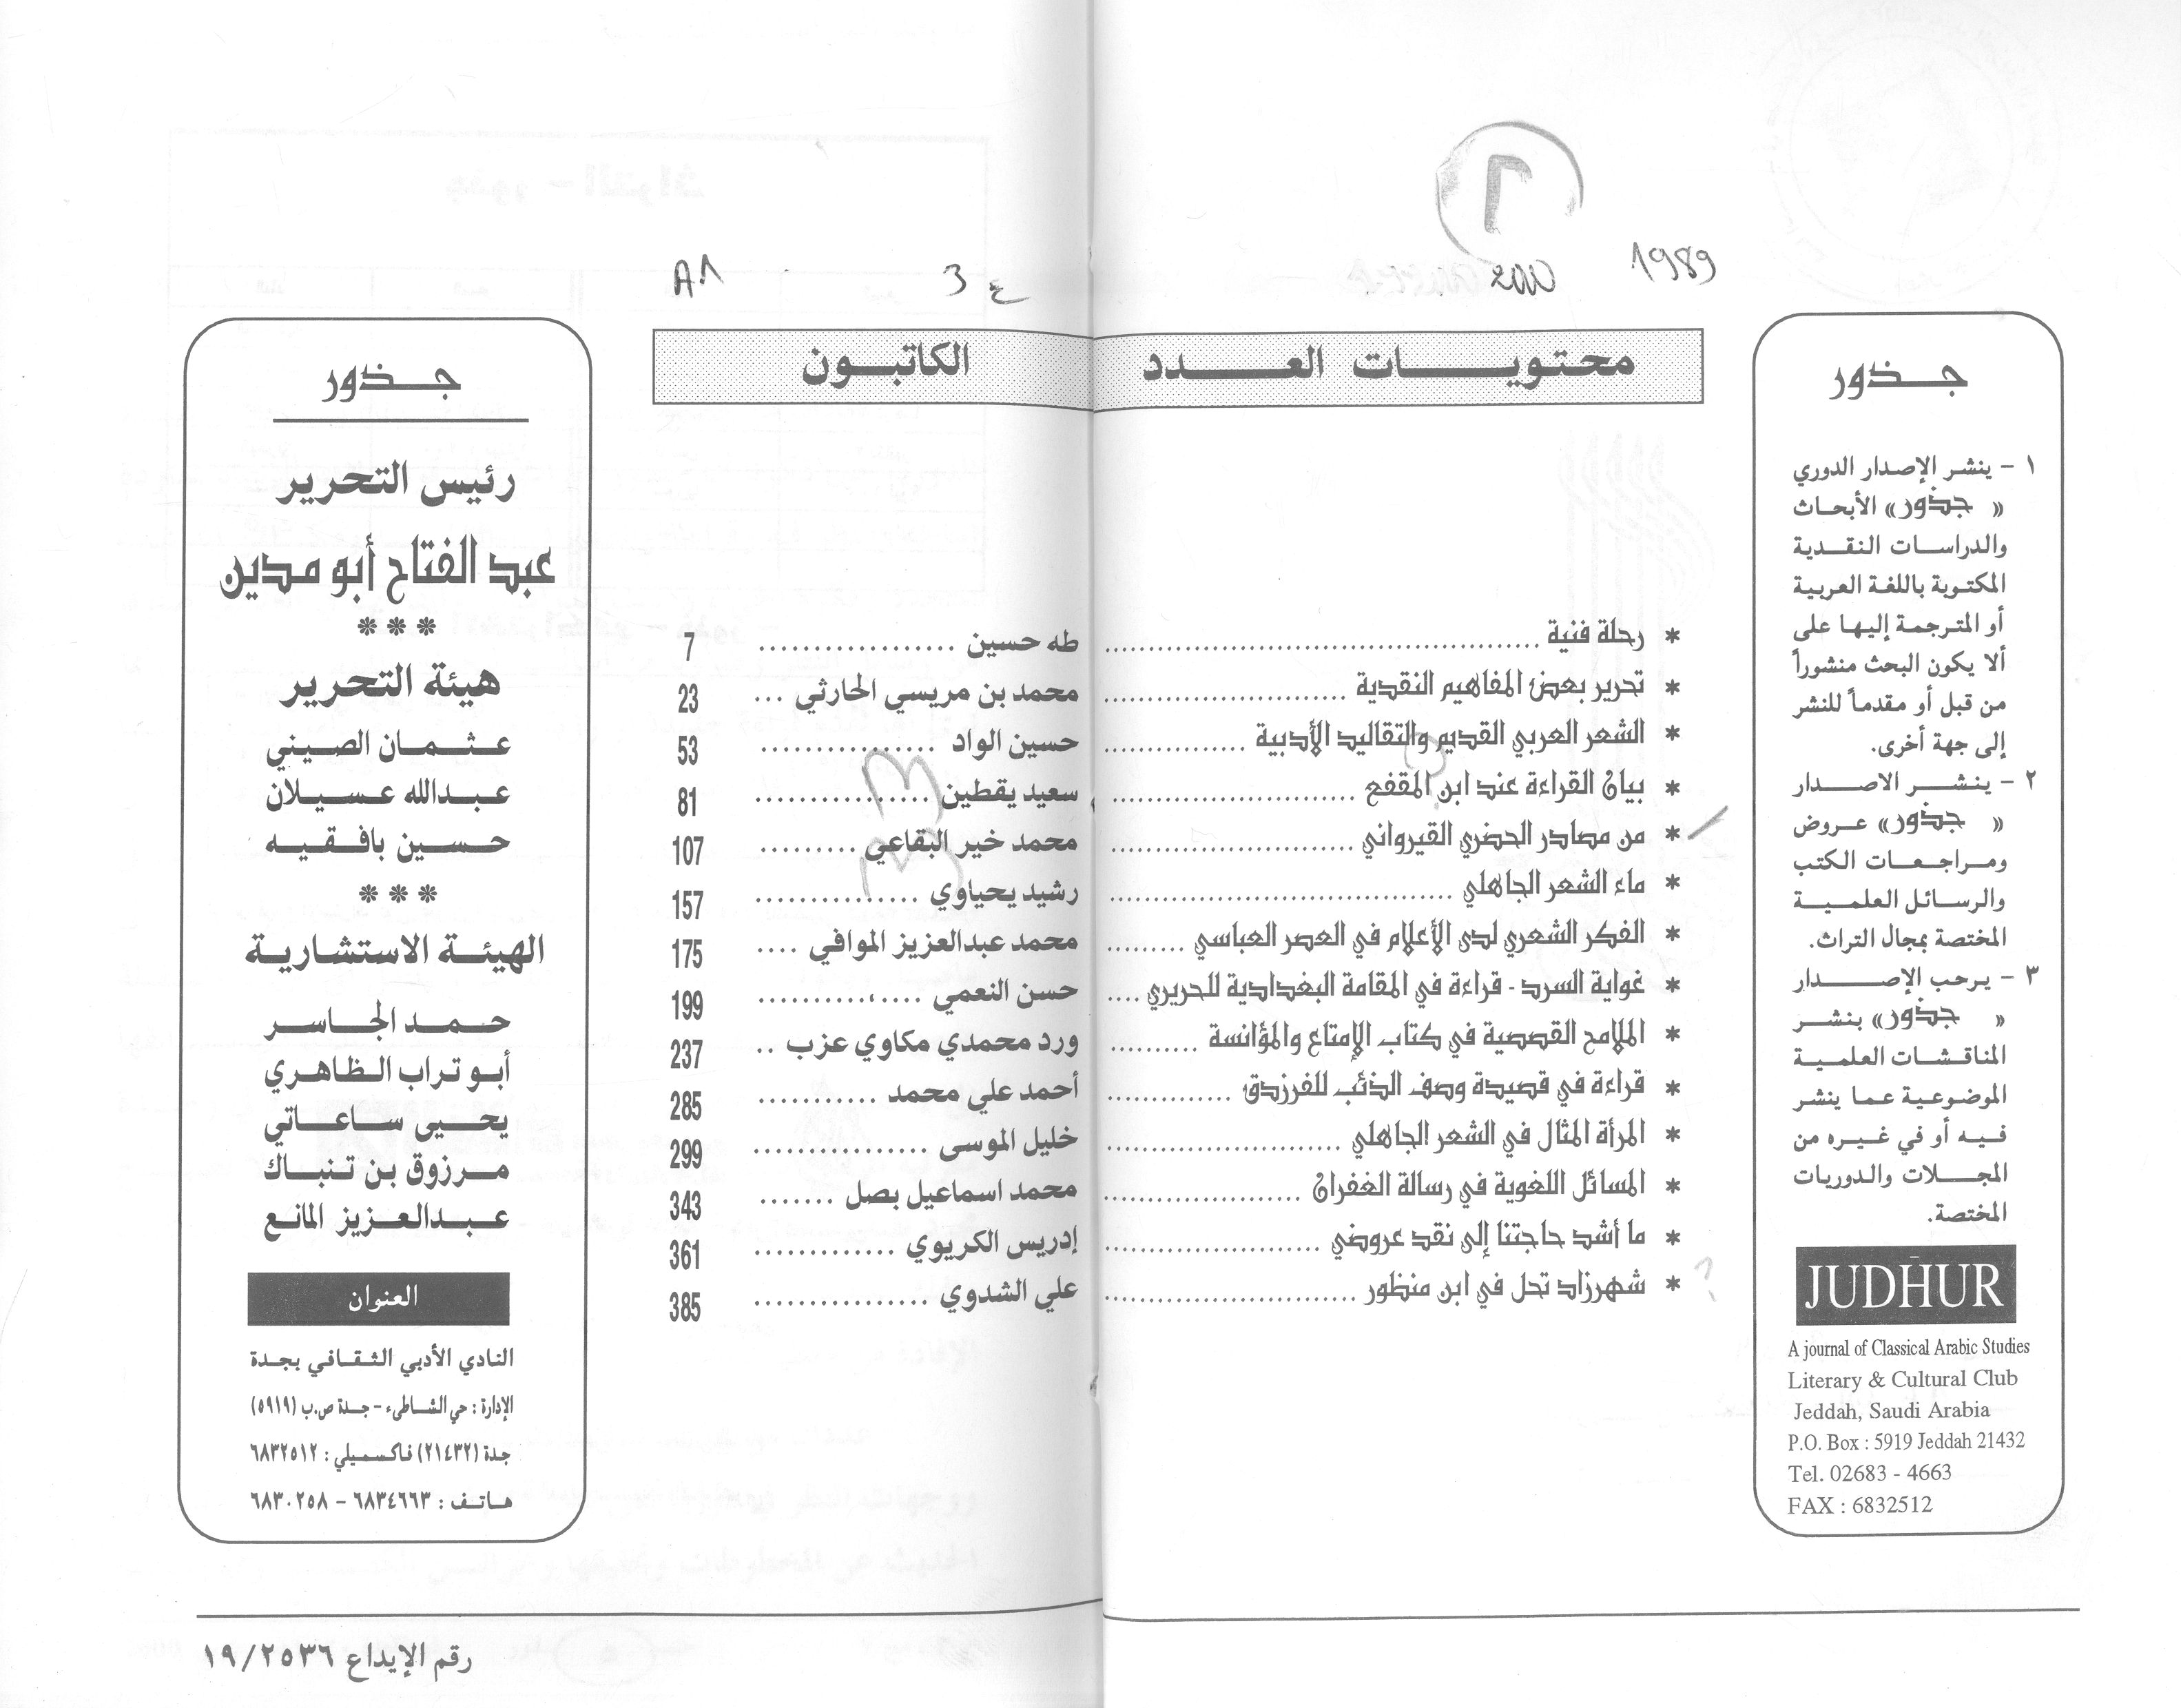 1989
2000
3 ع
A1
جذور
١ - ينشر الإصدار الدوري
« جذور» الأبحاث
والدراسات النقدية
المكتوبة باللغة العربية
أو المترجمة إليها على
ألا يكون البحث منشوراً
من قبل أو مقدماً للنشر
إلى جهة أخرى.
٢ - ينشر الاصدار
« جذور» عروض
ومراجعات الكتب
والرسائل العلمية
المختصة بمجال التراث.
٣ - يرحب الإصدار
« جذور» بنشر
المناقشات العلمية
الموضوعية عما ينشر
فيه أو في غيره من
المجلات والدوريات
المختصة.
JUDHUR
A journal of Classical Arabic Studies
Literary & Cultural Club
Jeddah, Saudi Arabia
P.O. Box : 5919 Jeddah 21432
Tel. 02683 - 4663
FAX : 6832512
محتويات العدد الكاتبون
* رحلة فنية ........ طه حسين ........ 7
* تحرير بعض المفاهيم النقدية ........ محمد بن مريسي الحارثي ... 23
* الشعر العربي القديم والتقاليد الأدبية ........ حسين الواد ........ 53
* بيان القراءة عند ابن المقفع ........ سعيد يقطين ........ 81
* من مصادر الحضري القيرواني ........ محمد خير البقاعي ........ 107
* ماء الشعر الجاهلي ........ رشيد يحياوي ........ 157
* الفكر الشعري لدى الأعلام في العصر العباسي ........ محمد عبدالعزيز الموافي .... 175
* غواية السرد - قراءة في المقامة البغدادية للحريري .... حسن النعمي ........ 199
* الملامح القصصية في كتاب الإمتاع والمؤانسة ........ ورد محمدي مكاوي عزب .. 237
* قراءة في قصيدة وصف الذئب للفرزدق ........ أحمد علي محمد ........ 285
* المرأة المثال في الشعر الجاهلي ........ خليل الموسى ........ 299
* المسائل اللغوية في رسالة الغفران ........ محمد اسماعيل بصل ....... 343
* ما أشد حاجتنا إلى نقد عروضي ........ إدريس الكريوي ........ 361
* شهرزاد تحل في ابن منظور ........ علي الشدوي ........ 385
جذور
رئيس التحرير
عبد الفتاح أبو مدين
***
هيئة التحرير
عثمان الصيني
عبدالله عسيلان
حسين بافقيه
***
الهيئة الاستشارية
حمد الجاسر
أبو تراب الظاهري
يحيى ساعاتي
مرزوق بن تنباك
عبدالعزيز المانع
العنوان
النادي الأدبي الثقافي بجدة
الإدارة : حي الشاطىء - جدة ص.ب (٥٩١٩)
جدة (٢١٤٣٢) فاكسميلي : ٦٨٣٢٥١٢
هاتف : ٦٨٣٤٦٦٣ - ٦٨٣٠٢٥٨
رقم الإيداع ١٩/٢٥٣٦